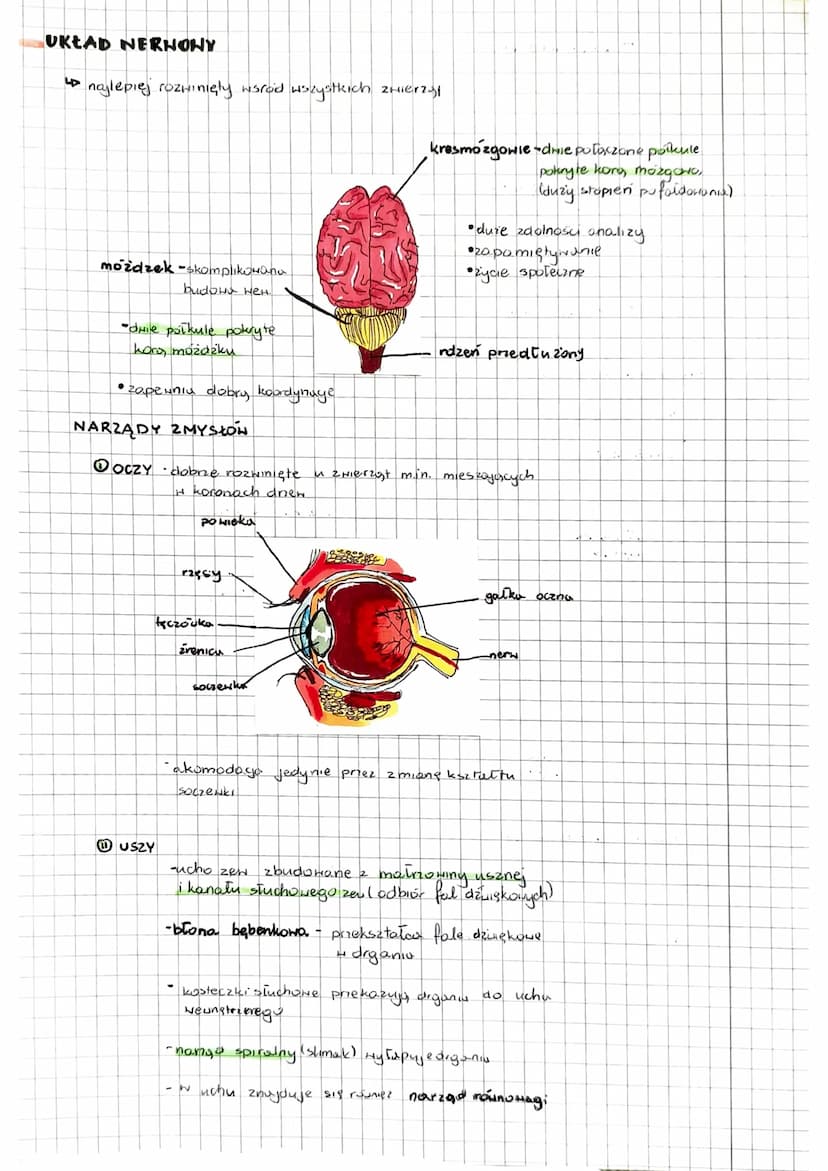 UKŁAD NERWOWY
↳ najlepiej rozwinięty wśród wszystkich zwierząt
kresomózgowie - dwie połączone półkule
pokryte korą mózgową,
(duży stopień pofałdowania)
• duże zdolności analizy
• zapamiętywanie
• życie społeczne
móżdżek - skomplikowana
budowa wew.
- dwie półkule pokryte
korą móżdżku
rdzeń przedłużony
• zapewnia dobrą koordynację
NARZĄDY ZMYSŁÓW
I OCZY · dobrze rozwinięte u zwierząt m.in. mieszkających
w koronach drzew
powieka
rzęsy
gałka oczna
tęczówka
źrenica
nerw
soczewka
- akomodacja jedynie przez zmianę kształtu
soczewki
II USZY
- ucho zew zbudowane z małżowiny usznej
i kanału słuchowego zew (odbiór fal dźwiękowych)
- błona bębenkowa - przekształca fale dźwiękowe
w drgania
- kosteczki słuchowe przekazują drgania do ucha
wewnętrznego
- narząd spiralny (ślimak) wyłapuje drgania
- w uchu znajduje się również narząd równowagi